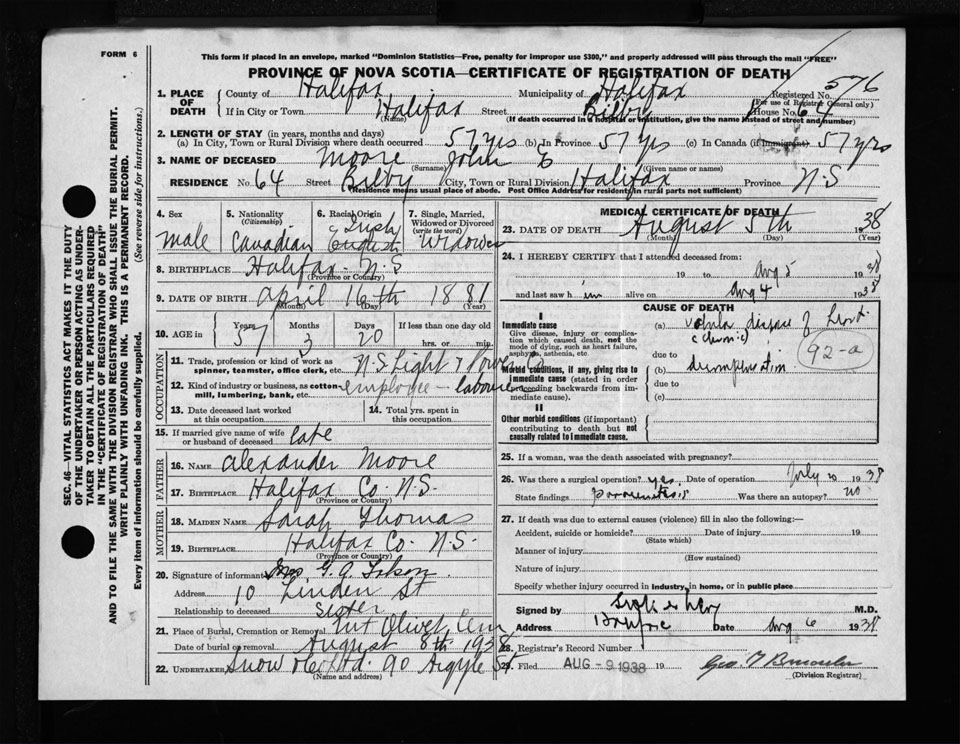 FORM 6
This form if placed in an envelope, marked "Dominion Statistics—Free, penalty for improper use $300," and properly addressed will pass through the mail "FREE"
PROVINCE OF NOVA SCOTIA—CERTIFICATE OF REGISTRATION OF DEATH
SEC. 46—VITAL STATISTICS ACT MAKES IT THE DUTY
OF THE UNDERTAKER OR PERSON ACTING AS UNDER-
TAKER TO OBTAIN ALL THE PARTICULARS REQUIRED
IN THE "CERTIFICATE OF REGISTRATION OF DEATH"
AND TO FILE THE SAME WITH THE DIVISION REGISTRAR WHO SHALL ISSUE THE BURIAL PERMIT.
WRITE PLAINLY WITH UNFADING INK. THIS IS A PERMANENT RECORD.
Every item of information should be carefully supplied. (See reverse side for instructions.)
1. PLACE OF DEATH
County of Halifax Municipality of Halifax Registered No. 576
(For use of Registrar General only)
If in City or Town Halifax Street Bilby House No. 64
(Name) (If death occurred in a hospital or institution, give the name instead of street and number)
2. LENGTH OF STAY (in years, months and days)
(a) In City, Town or Rural Division where death occurred 57 yrs (b) In Province 57 yrs (c) In Canada (if Immigrant) 57 yrs
3. NAME OF DECEASED Moore John E
(Surname) (Given name or names)
RESIDENCE No. 64 Street Bilby City, Town or Rural Division Halifax Province N.S
(Residence means usual place of abode. Post Office Address for residents in rural parts not sufficient)
4. Sex male
5. Nationality (Citizenship) Canadian
6. Racial Origin Irish English
7. Single, Married, Widowed or Divorced (write the word) Widower
8. BIRTHPLACE Halifax N.S
(Province or Country)
9. DATE OF BIRTH April 16th 1881
(Month) (Day) (Year)
10. AGE in Years 57 Months 3 Days 20 If less than one day old hrs. or min.
OCCUPATION
11. Trade, profession or kind of work as spinner, teamster, office clerk, etc. N.S Light & Power Co
12. Kind of industry or business, as cotton-mill, lumbering, bank, etc. employee - labourer
13. Date deceased last worked at this occupation
14. Total yrs. spent in this occupation
15. If married give name of wife or husband of deceased
FATHER
16. NAME Alexander Moore
17. BIRTHPLACE Halifax Co. N.S.
(Province or Country)
MOTHER
18. MAIDEN NAME Sarah Thomas
19. BIRTHPLACE Halifax Co. N.S.
(Province or Country)
20. Signature of informant Mrs G. A.
Address 10 Linden St
Relationship to deceased Sister
21. Place of Burial, Cremation or Removal Mt Olivet Cem
Date of burial or removal August 8th 1938
22. UNDERTAKER Snow & Co Ltd. 90 Argyle St
(Name and address)
MEDICAL CERTIFICATE OF DEATH
23. DATE OF DEATH August 5th 1938
(Month) (Day) (Year)
24. I HEREBY CERTIFY that I attended deceased from:
19 to Aug 5 1938
and last saw him alive on Aug 4 1938
CAUSE OF DEATH
I
Immediate cause
Give disease, injury or complication which caused death, not the mode of dying, such as heart failure, asphyxia, asthenia, etc
Morbid conditions, if any, giving rise to immediate cause (stated in order proceeding backwards from immediate cause).
II
Other morbid conditions (if important) contributing to death but not causally related to immediate cause.
(a) disease of heart
(chronic)
92-a
due to
(b) decompensation
due to
(c)
25. If a woman, was the death associated with pregnancy?
26. Was there a surgical operation? yes Date of operation July 1938
State findings Was there an autopsy? no
27. If death was due to external causes (violence) fill in also the following:—
Accident, suicide or homicide? Date of injury 19
(State which)
Manner of injury
(How sustained)
Nature of injury
Specify whether injury occurred in industry, in home, or in public place
Signed by M.D.
Address Date Aug 6 1938
28. Registrar's Record Number
29. Filed AUG -9 1938 19
(Division Registrar)